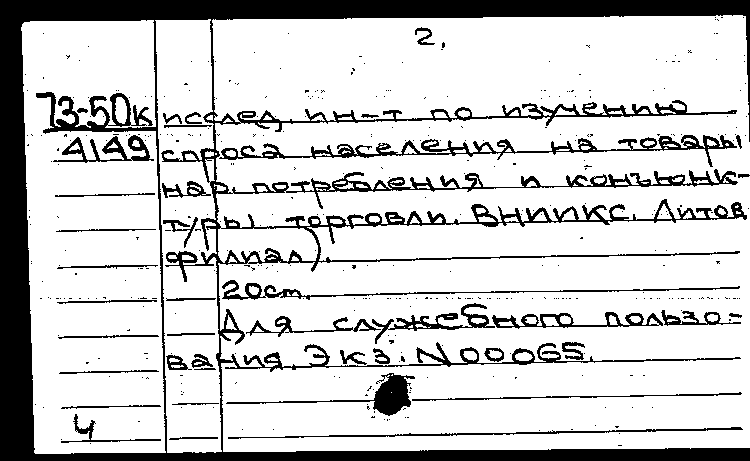 2.
73-50к исслед. ин-т по изучению
4149 спроса населения на товары
нар. потребления и конъюнк-
туры торговли. ВНИИКС. Литов.
филиал).
20 см.
Для служебного пользо-
вания. Экз. N 00065.
4